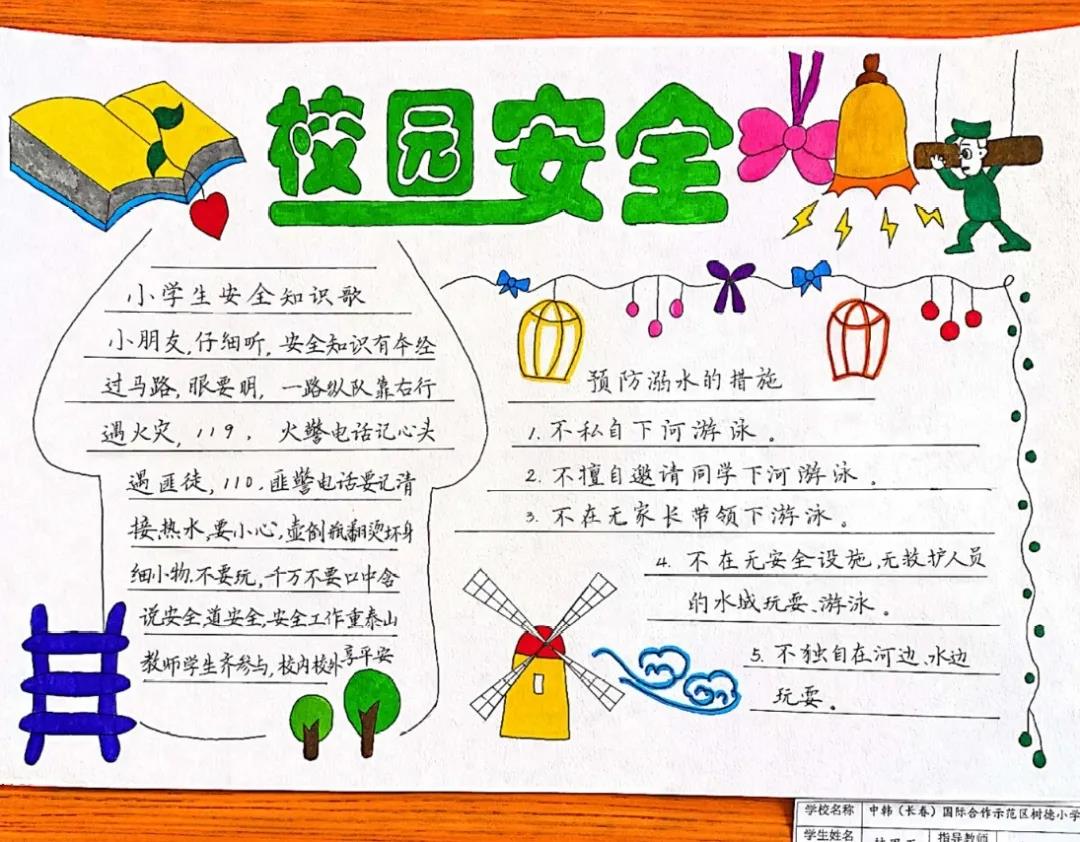 校园安全
小学生安全知识歌
小朋友,仔细听,安全知识有本经
过马路,眼要明,一路纵队靠右行
遇火灾,119,火警电话记心头
遇匪徒,110,匪警电话要记清
接热水,要小心,壶倒瓶翻烫坏身
细小物,不要玩,千万不要口中含
说安全,道安全,安全工作重泰山
教师学生齐参与,校内校外享平安
预防溺水的措施
1. 不私自下河游泳。
2. 不擅自邀请同学下河游泳。
3. 不在无家长带领下游泳。
4. 不在无安全设施,无救护人员
的水域玩耍、游泳。
5. 不独自在河边、水边
玩耍。
学校名称 中韩（长春）国际合作示范区树德小学
学生姓名 指导教师